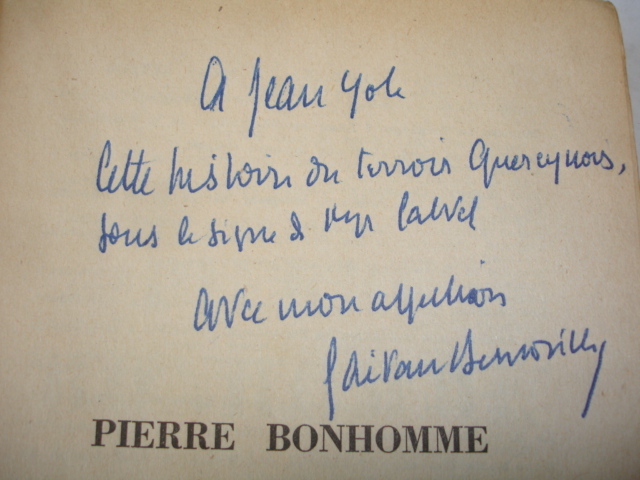 A Jean Yole
Cette histoire du terroir Quercynois,
sous le signe de Mgr Calvel
avec mon affection
Gaëtan Bernoville
PIERRE BONHOMME